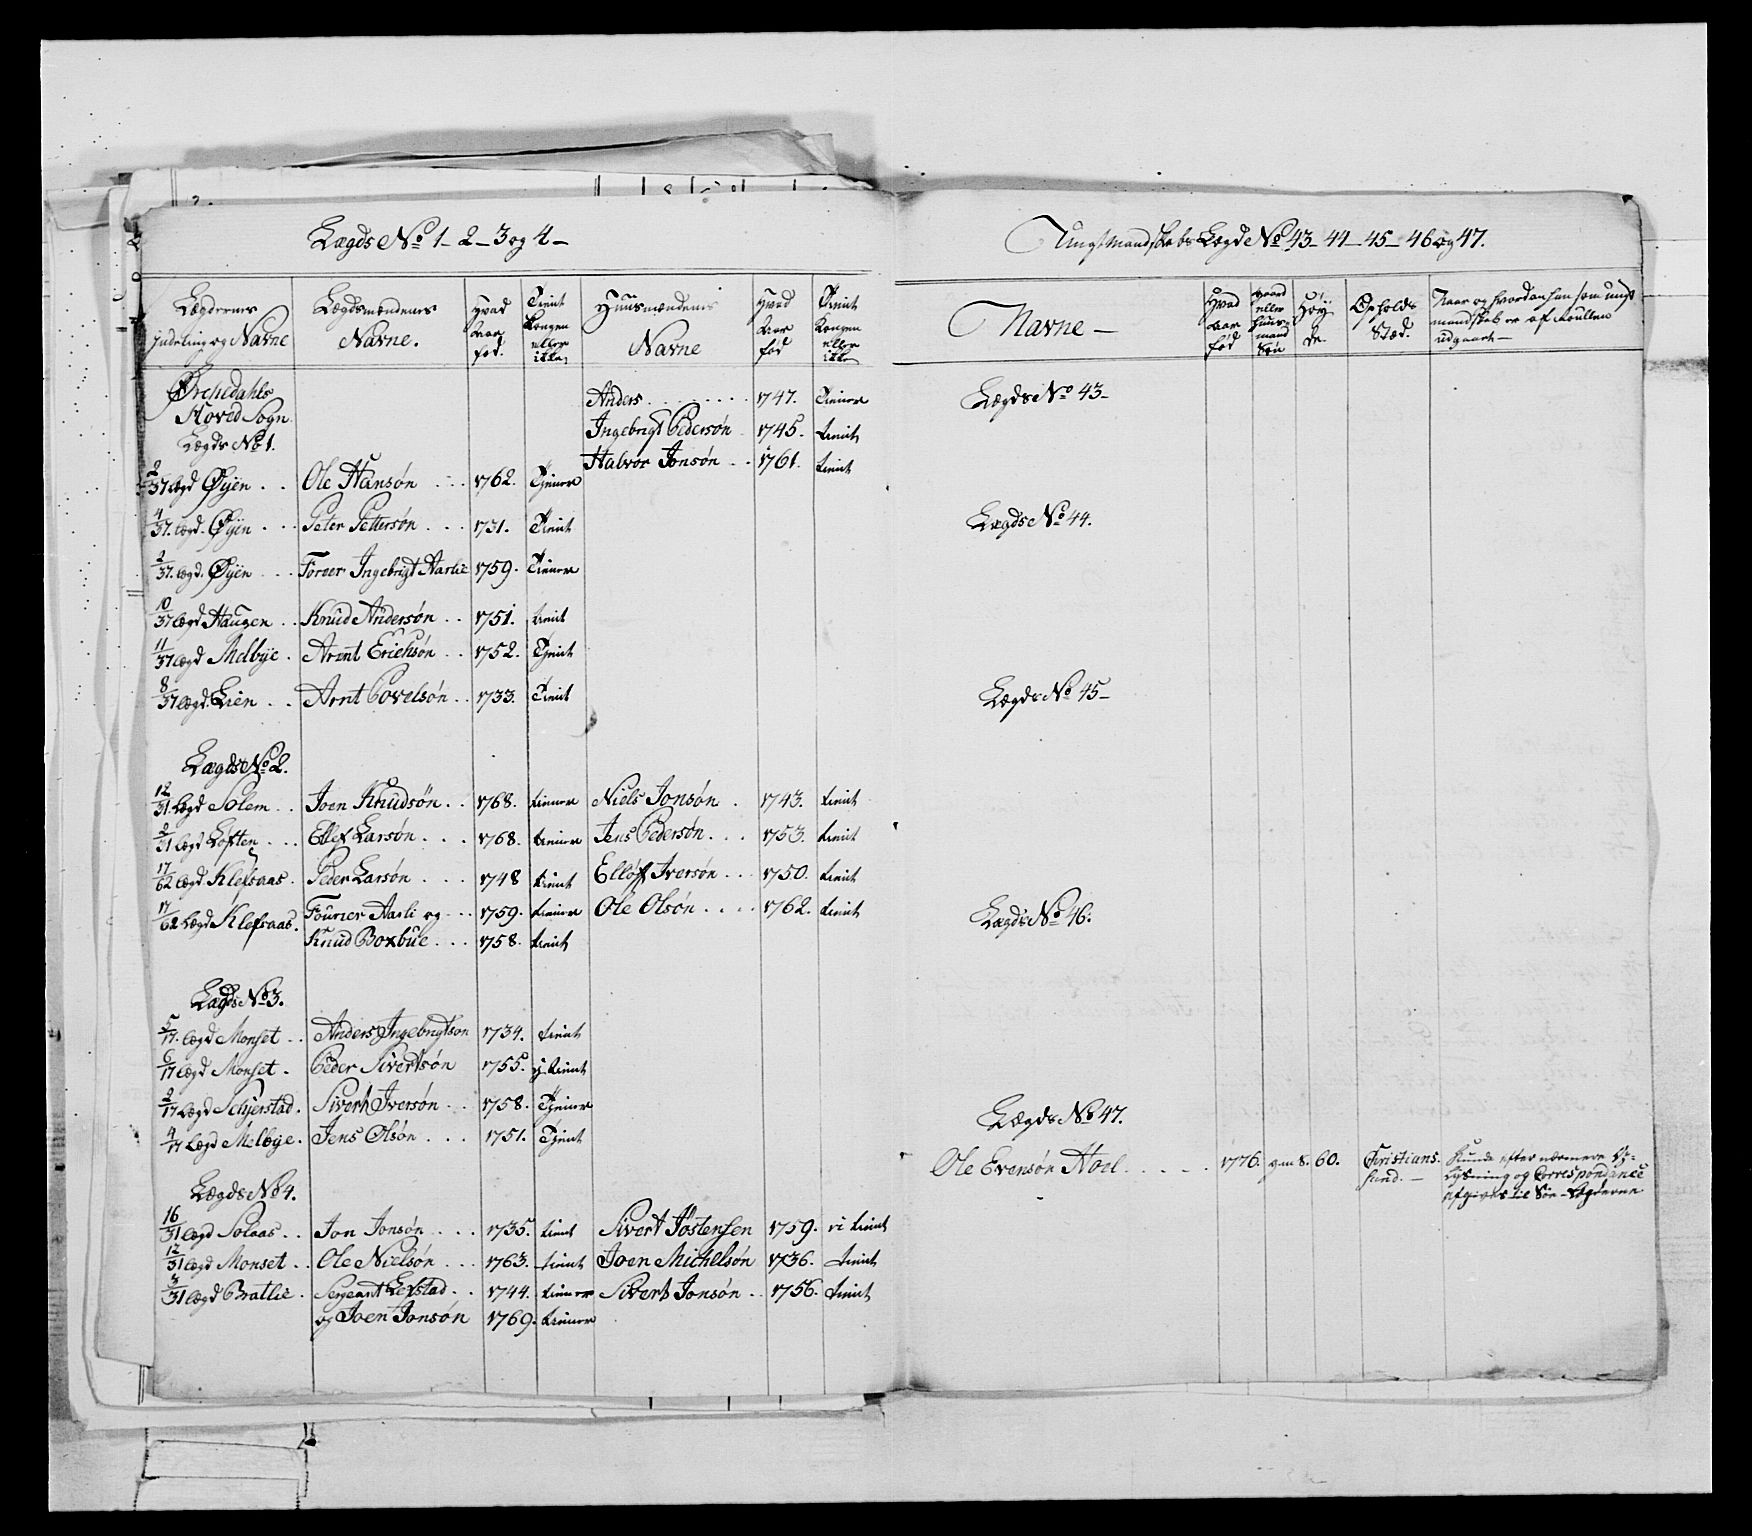 Lægds No 1 - 2 - 3 og 4 -
Lægdernes Inddeling og Navne
Lægdsmændenes Navne.
Hvad Aar fød.
Tient Kongen eller ikke
Huusmændenes Navne
Hvad Aar fød
Tient Kongen eller ikke
Ørchedahls
Hoved Sogn
Lægds No 1.
Anders . . . . . . . . 1747. Tiener
Ingebrigt Pedersøn 1745. tient
Halvor Jonsøn . . 1761. tient
2/37 Lægd Øyen . . Ole Hansøn . . . 1762. Tjener
4/37. Lægd. Øyen . . . Peter Pettersøn . . . 1731. Tient
2/37. Lægd. Øyen . . . Forer Ingebrigt Aarlie 1759. Tiener
10/37 Lægd Haugen . . Knud Andersøn . . 1751. tient
11/37 Lægd Melbye . Arent Erichsøn . . 1752. Tjent
8/37 Lægd. Lien . . Arnt Povelsøn . . 1733. Tient
Lægds No 2.
12/31 Lægd Solem . . Joen Knudsøn . . 1768. tiener Niels Jonsøn . 1743. tient
2/31 Lægd Loften . . . Ellef Larsøn . . . 1768. tiener Jens Pedersøn . . . 1753. tient
17/62 Lægd Klefsaas . Peder Larsøn . . . 1748 tient Elløf Iversøn . . . 1750. tient
17/62 Lægd Klefsaas. Fourier Aarli og . . . 1759. tiener Ole Olsøn . . . . 1762. tient
Knud Boxbue . . . 1758. tient
Lægds No 3.
5/17. Lægd Monset . . Anders Ingebrigtson 1734. tient
6/17 Lægd Monset . Peder Sivertsøn 1755. ej tient
2/17 Lægd Schjerstad . Sivert Iversøn . . 1758. Tjener
4/17 Lægd Melbye . Jens Olsøn . . . 1751. Tjent
Lægds No 4.
16/31 Lægd Solaas . . Jon Jonsøn . . . . 1735. tient Sivert Jostensen 1759. ei tient
12/31 Lægd Monset . . Ole Nielsøn . . . 1763. tient Joen Michelsøn 1736. tient
3/31 Lægd Bratlie . Sergeant Lefstad . . 1744. tiener Sivert Jonsøn . . 1756. tient
og Joen Jonsøn 1769. tiener
Ungt Mandskabs Lægde No 43 - 44 - 45 - 46 og 47.
Navne -
Hvad Aar fød
Gaard eller Huusmand Søn
Høyde.
Opholds Stæd.
Naar og hvordan han som ungt
mandskab er af Roullen
udgaaet -
Lægds No 43 -
Lægds No 44.
Lægds No 45 -
Lægds No 46.
Lægds No 47.
Ole Evensøn Hoel . . . . . 1776. gm S. 60. Christians
sund. - Kunde efter nærmere Op-
lysning og Correspondence
afgives til Søe-Lægderne